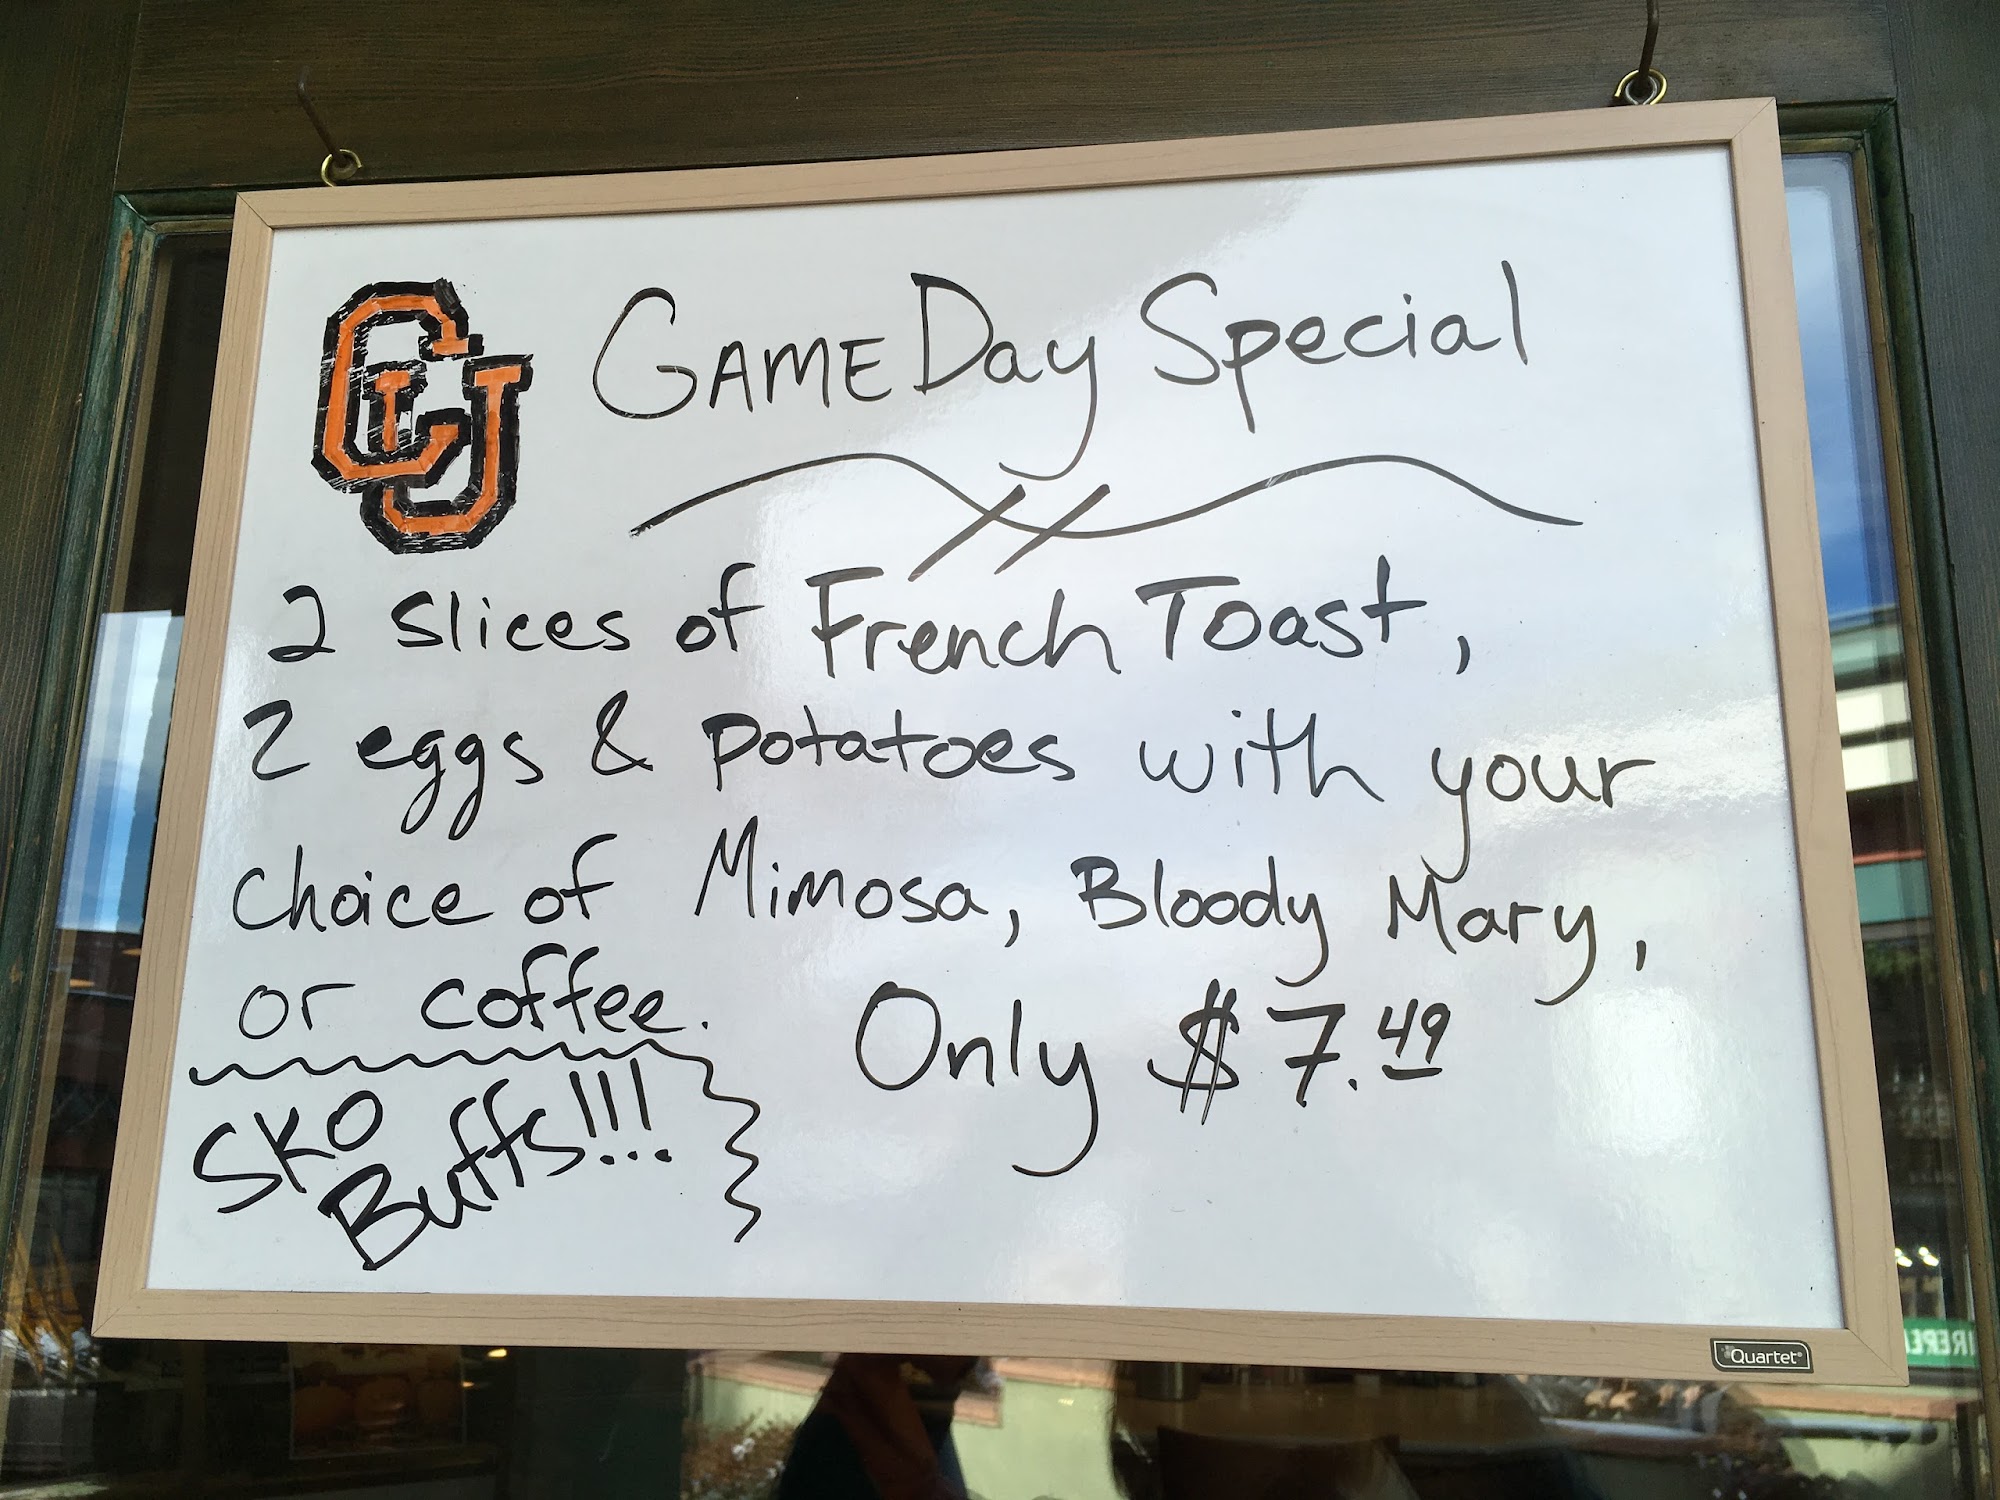 CU GAMEDay Special
2 slices of French Toast,
2 eggs & potatoes with your
choice of Mimosa, Bloody Mary,
or coffee. Only $7.49
SKO
Buffs!!!
Quartet